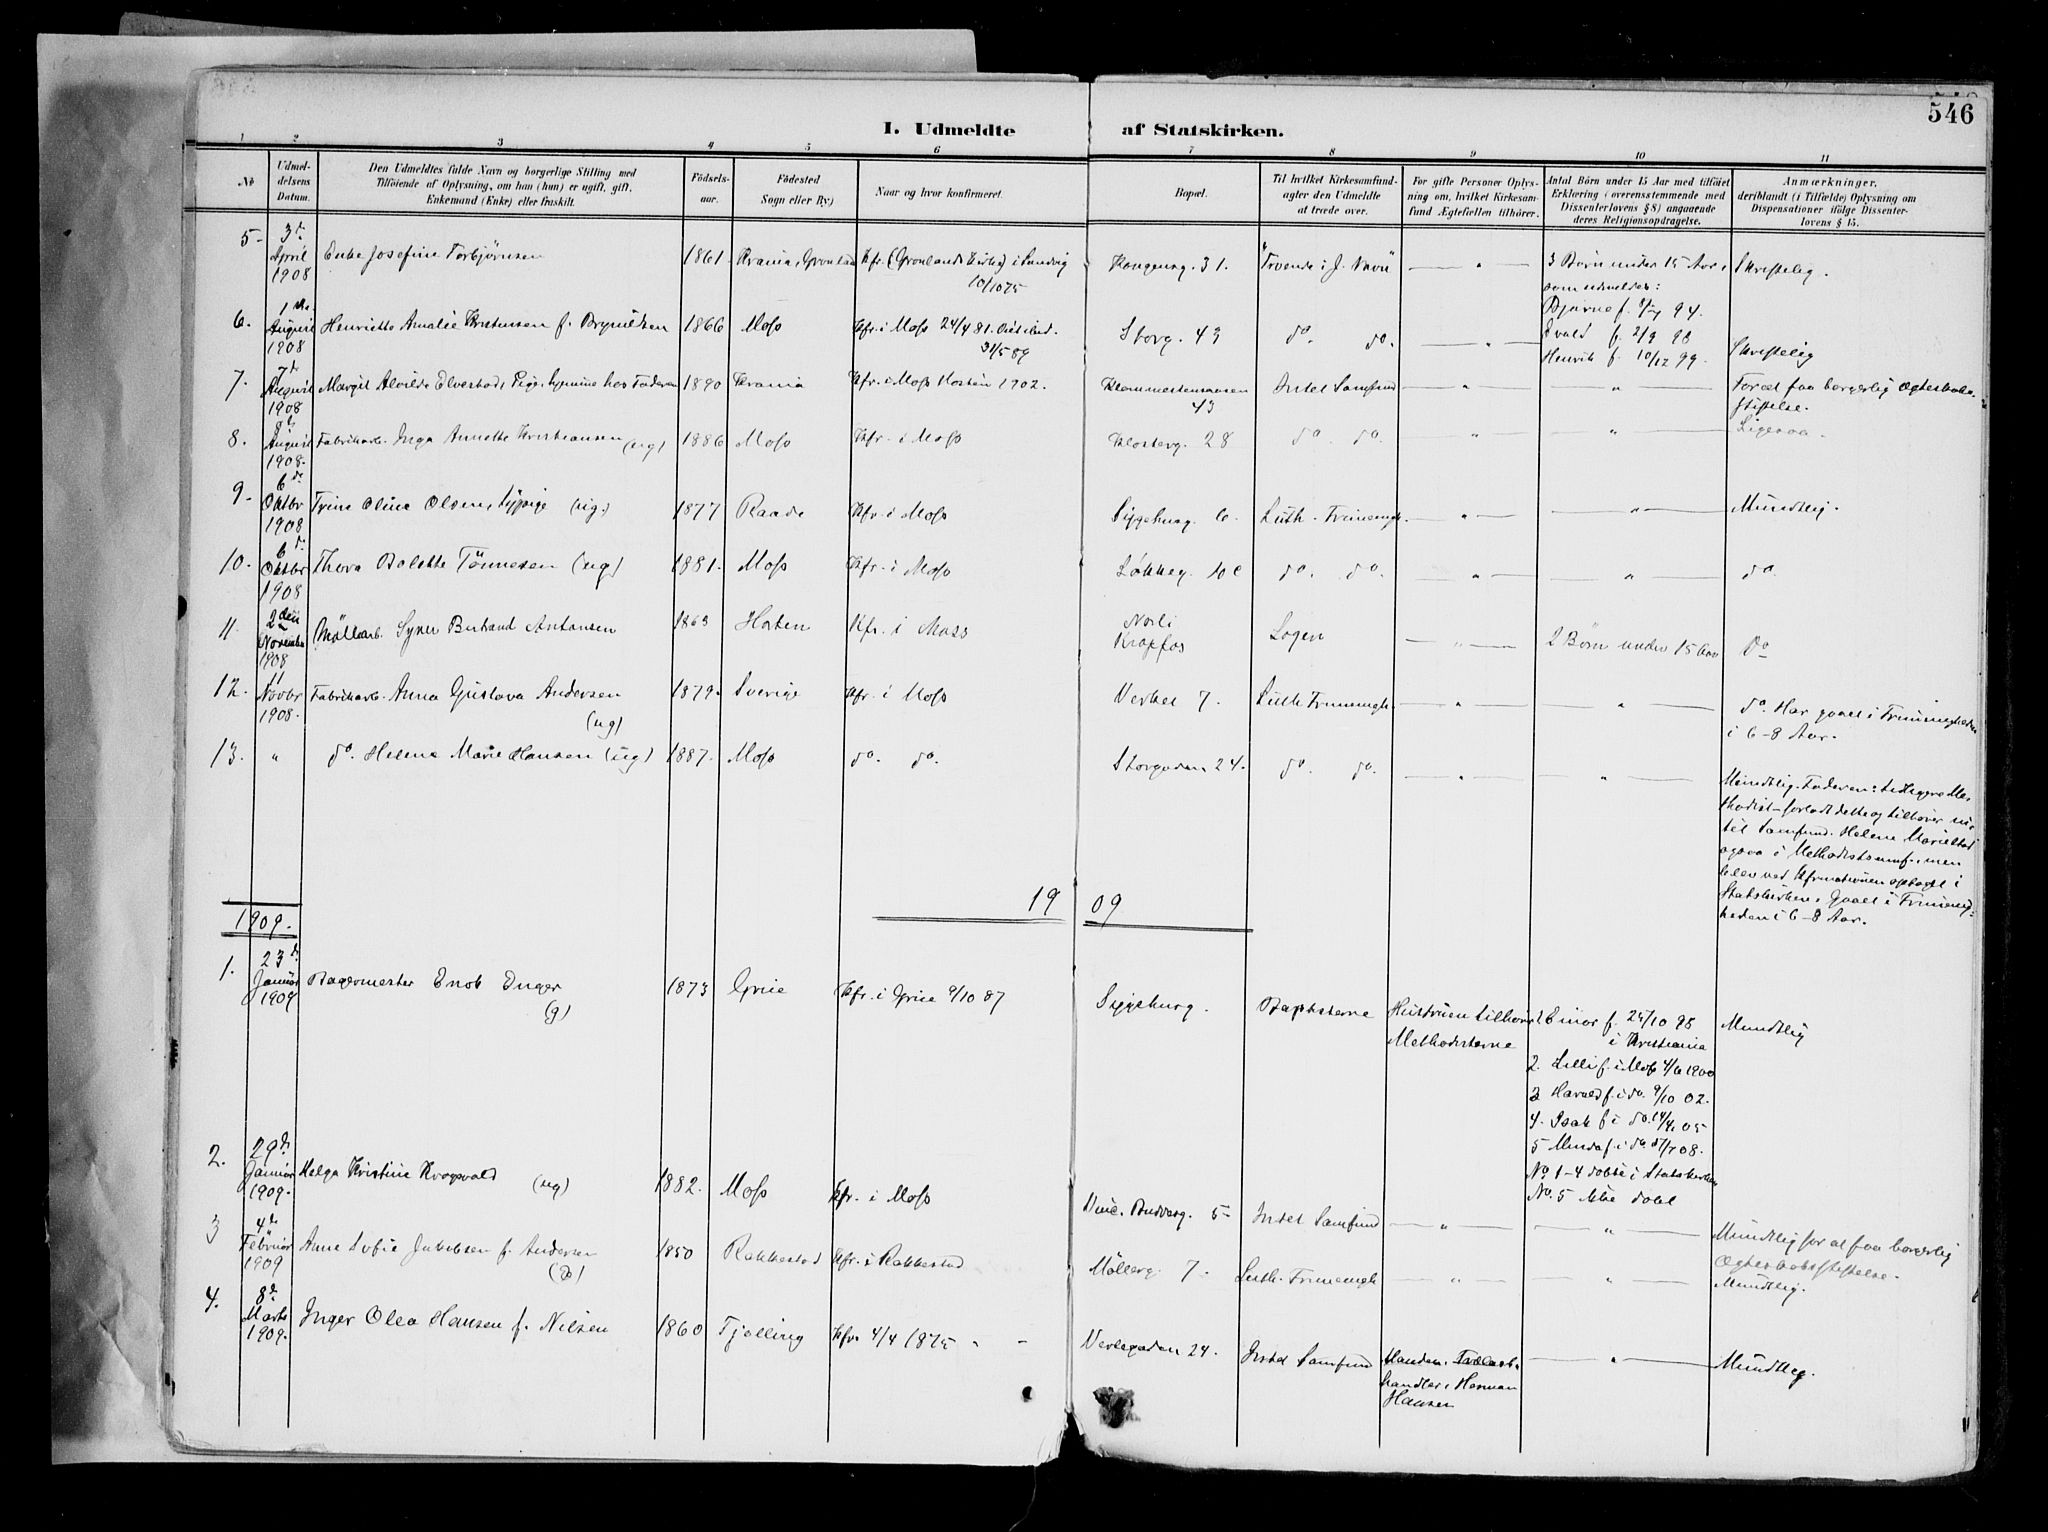 546
I. Udmeldte af Statskirken.
1 2 3 4 5 6 7 8 9 10 11
No
Udmeldelsens Datum.
Den Udmeldtes fulde Navn og borgerlige Stilling med
Tilføiende af Oplysning, om han (hun) er ugift, gift,
Enkemand (Enke) eller fraskilt.
Födselsaar.
Födested
Sogn eller By)
Naar og hvor konfirmeret.
Bopæl.
Til hvilket Kirkesamfund
agter den Udmeldte
at træde over.
For gifte Personer Oplysning om, hvilket Kirkesamfund Ægtefællen tilhörer.
Antal Börn under 15 Aar med tilföiet
Erklæring (overensstemmende med
Dissenterlovens § 8) angaaende
deres Religionsopdragelse.
Anmærkninger,
deriblandt (i Tilfælde) Oplysning om
Dispensationer ifölge Dissenterlovens § 15.
5- 3d April 1908 Enke Josefine Torbjörnsen 1861 Krania, Grönland Kfr. (Grönlands Kirke) i Sandvig 10/10 75 Kongensg. 31. "Troende i J. Navn" — " — 3 Börn under 15 Aar, Skriftlig.
som udmeldes:
Bjarne f. 94.
6. 1ste August 1908 Henriette Amalie Kristensen f. Brynildsen 1866 Moss Kfr. i Moss 24/4 81. 31/5 89 Storg. 43 do. do. — " — f. 2/9 98
Henrik f. 10/12 99. Skriftlig
7. 7d August 1908 Margit Alvilde Elvestad, Pige, hos Faderen 1890 Krania Kfr. i Moss Hösten 1902. 43 Intet Samfund — " — — " — For at faa borgerlig Ægteskabsstiftelse.
8. 8d August 1908. Fabrikarb. Inga Annette Kristiansen (ug) 1886 Moss Kfr. i Moss Klosterg. 28 do. do. — " — — " — Ligesaa.
9. 6d Oktbr 1908 Trine Oline Olsen, Sypige (ug.) 1877 Raade Kfr. i Moss Siggeburg. 6. Luth. Frimengh. — " — — " — Mundtlig.
10. 6d Oktbr 1908 Thora Bolette Tönnesen (ug) 1881. Moss Kfr. i Moss Løkkeg. 10 c do. do. — " — — " — do.
11. 2den November 1908 Möllearb. Syver Bertrand Antonsen 1863 Horten Kfr. i Moss Norli
Krapfos Logen — " — 2 Börn under 15 Aar do
12. 11 Novbr 1908. Fabrikarb. Anna Gustava Andersen (ug) 1879. Sverige Kfr. i Moss Verket 7. Luth Frimengh. — " — — " — do. Har gaaet i Frimenigheden
i 6-8 Aar.
13. " do. Helene Marie Hansen (ug) 1887. Moss do. do. Storgaden 24. do. do. — " — — " — Mundtlig. Faderen: tidligere Methodist – forladt dette og tilhører intet Samfund. Helene Marie stod
ogsaa i Methodistsamf., men
blev ved Kfrmationen optaget i
Statskirken. Gaaet i Frimenigheden i 6-8 Aar.
1909. 19 09
1. 23d Januar 1909 Bagermester Enok Enger (g) 1873 Grue Kfr. i Grue 9/10 87 Siggeburg. Baptisterne Hustruen tilhører
Methodisterne 1 Einar f. 25/10 98
i Kristiania
2. Lilli f. i Moss 4/6 1900
3 Harald f. i do. 9/10 02.
4. Isak f i do. 14/4 05
5 Minda f. i do. 08.
No 1-4 döbte i Statskirken
No. 5 ikke döbt Mundtlig
2. 29d Januar 1909. Helga Kristine Krogsvold (ug) 1882. Moss Kfr. i Moss Budverg. 5- Intet Samfund — " — — " — Mundtlig for at faa borgerlig
Ægteskabsstiftelse.
3 4d Februar 1909 Anne Sofie Jakobsen f. Andersen (g) 1850 Rakkestad Kfr. i Rakkestad Mölleg. 7- Luth. Frimenigh — " — — " — Mundtlig.
4. 8d Marts 1909. Inger Olea Hansen f. Nilsen 1860 Tjølling Kfr. 4/4 1875 - - Verlegaden 24. Intet Samfund Manden,
handler, Herman
Hansen — " — Mundtlig.